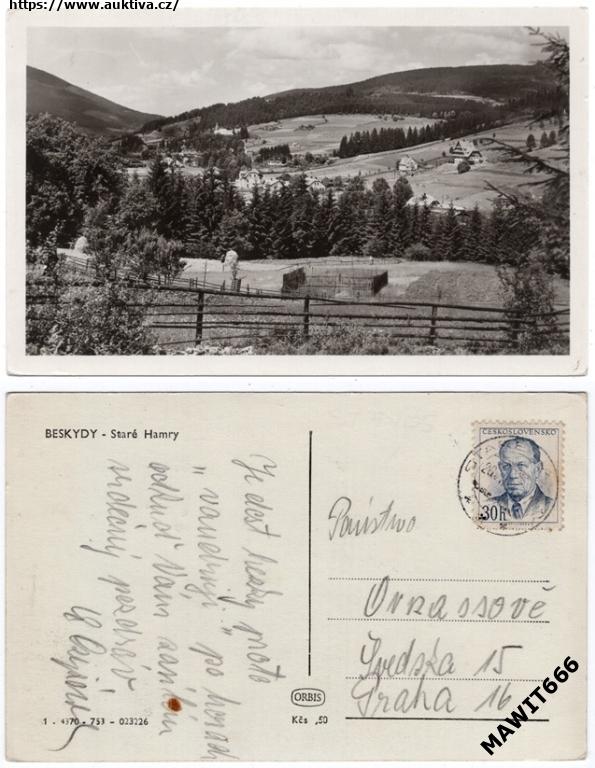 https://www.auktiva.cz/
BESKYDY - Staré Hamry
ČESKOSLOVENSKO
30h
Je dost hezky proto
"vandruji" po horách
odkud Vám zasílám
srdečný pozdrav
Panstvo
Švedska 15
Praha 16
ORBIS
1 - 4370 - 753 - 023226
Kčs ,50
MAWIT666